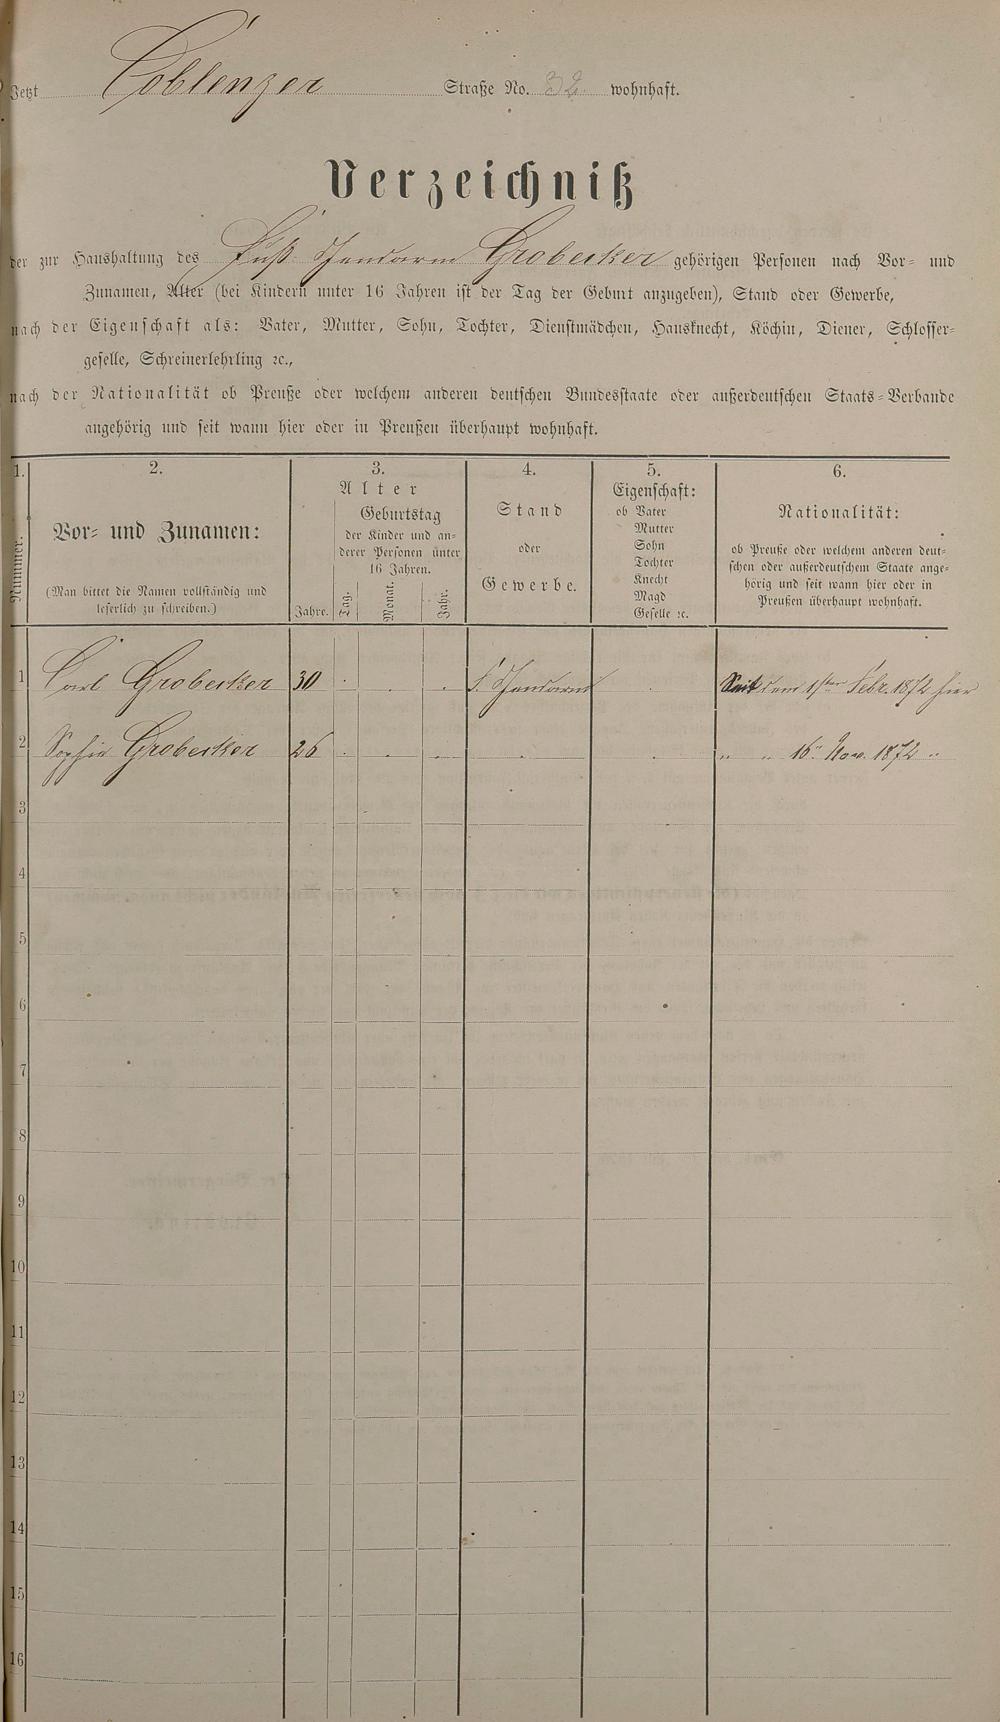 Jetzt Coblenzer Straße No. 32 wohnhaft.
Verzeichniß
der zur Haushaltung des Fuß Gendarm Grobecker gehörigen Personen nach Vor- und
Zunamen, Alter (bei Kindern unter 16 Jahren ist der Tag der Geburt anzugeben), Stand oder Gewerbe,
nach der Eigenschaft als: Vater, Mutter, Sohn, Tochter, Dienstmädchen, Hausknecht, Köchin, Diener, Schlosser-
geselle, Schreinerlehrling ꝛc.,
nach der Nationalität ob Preuße oder welchem anderen deutschen Bundesstaate oder außerdeutschen Staats-Verbande
angehörig und seit wann hier oder in Preußen überhaupt wohnhaft.
1.
Nummer.
2.
Vor- und Zunamen:
(Man bittet die Namen vollständig und
leserlich zu schreiben.)
3.
Alter
Geburtstag
der Kinder und an-
derer Personen unter
16 Jahren.
Jahre. Tag. Monat. Jahr.
4.
Stand
oder
Gewerbe.
5.
Eigenschaft:
ob Vater
Mutter
Sohn
Tochter
Knecht
Magd
Geselle ꝛc.
6.
Nationalität:
ob Preuße oder welchem anderen deut-
schen oder außerdeutschem Staate ange-
hörig und seit wann hier oder in
Preußen überhaupt wohnhaft.
1 Carl Grobecker 30 . . . f. Gendarm . Seit dem 1sten Febr. 1872 hier
2 Sophie Grobecker 26 . . . . . " " 16" Nov. 1872 "
3
4
5
6
7
8
9
10
11
12
13
14
15
16